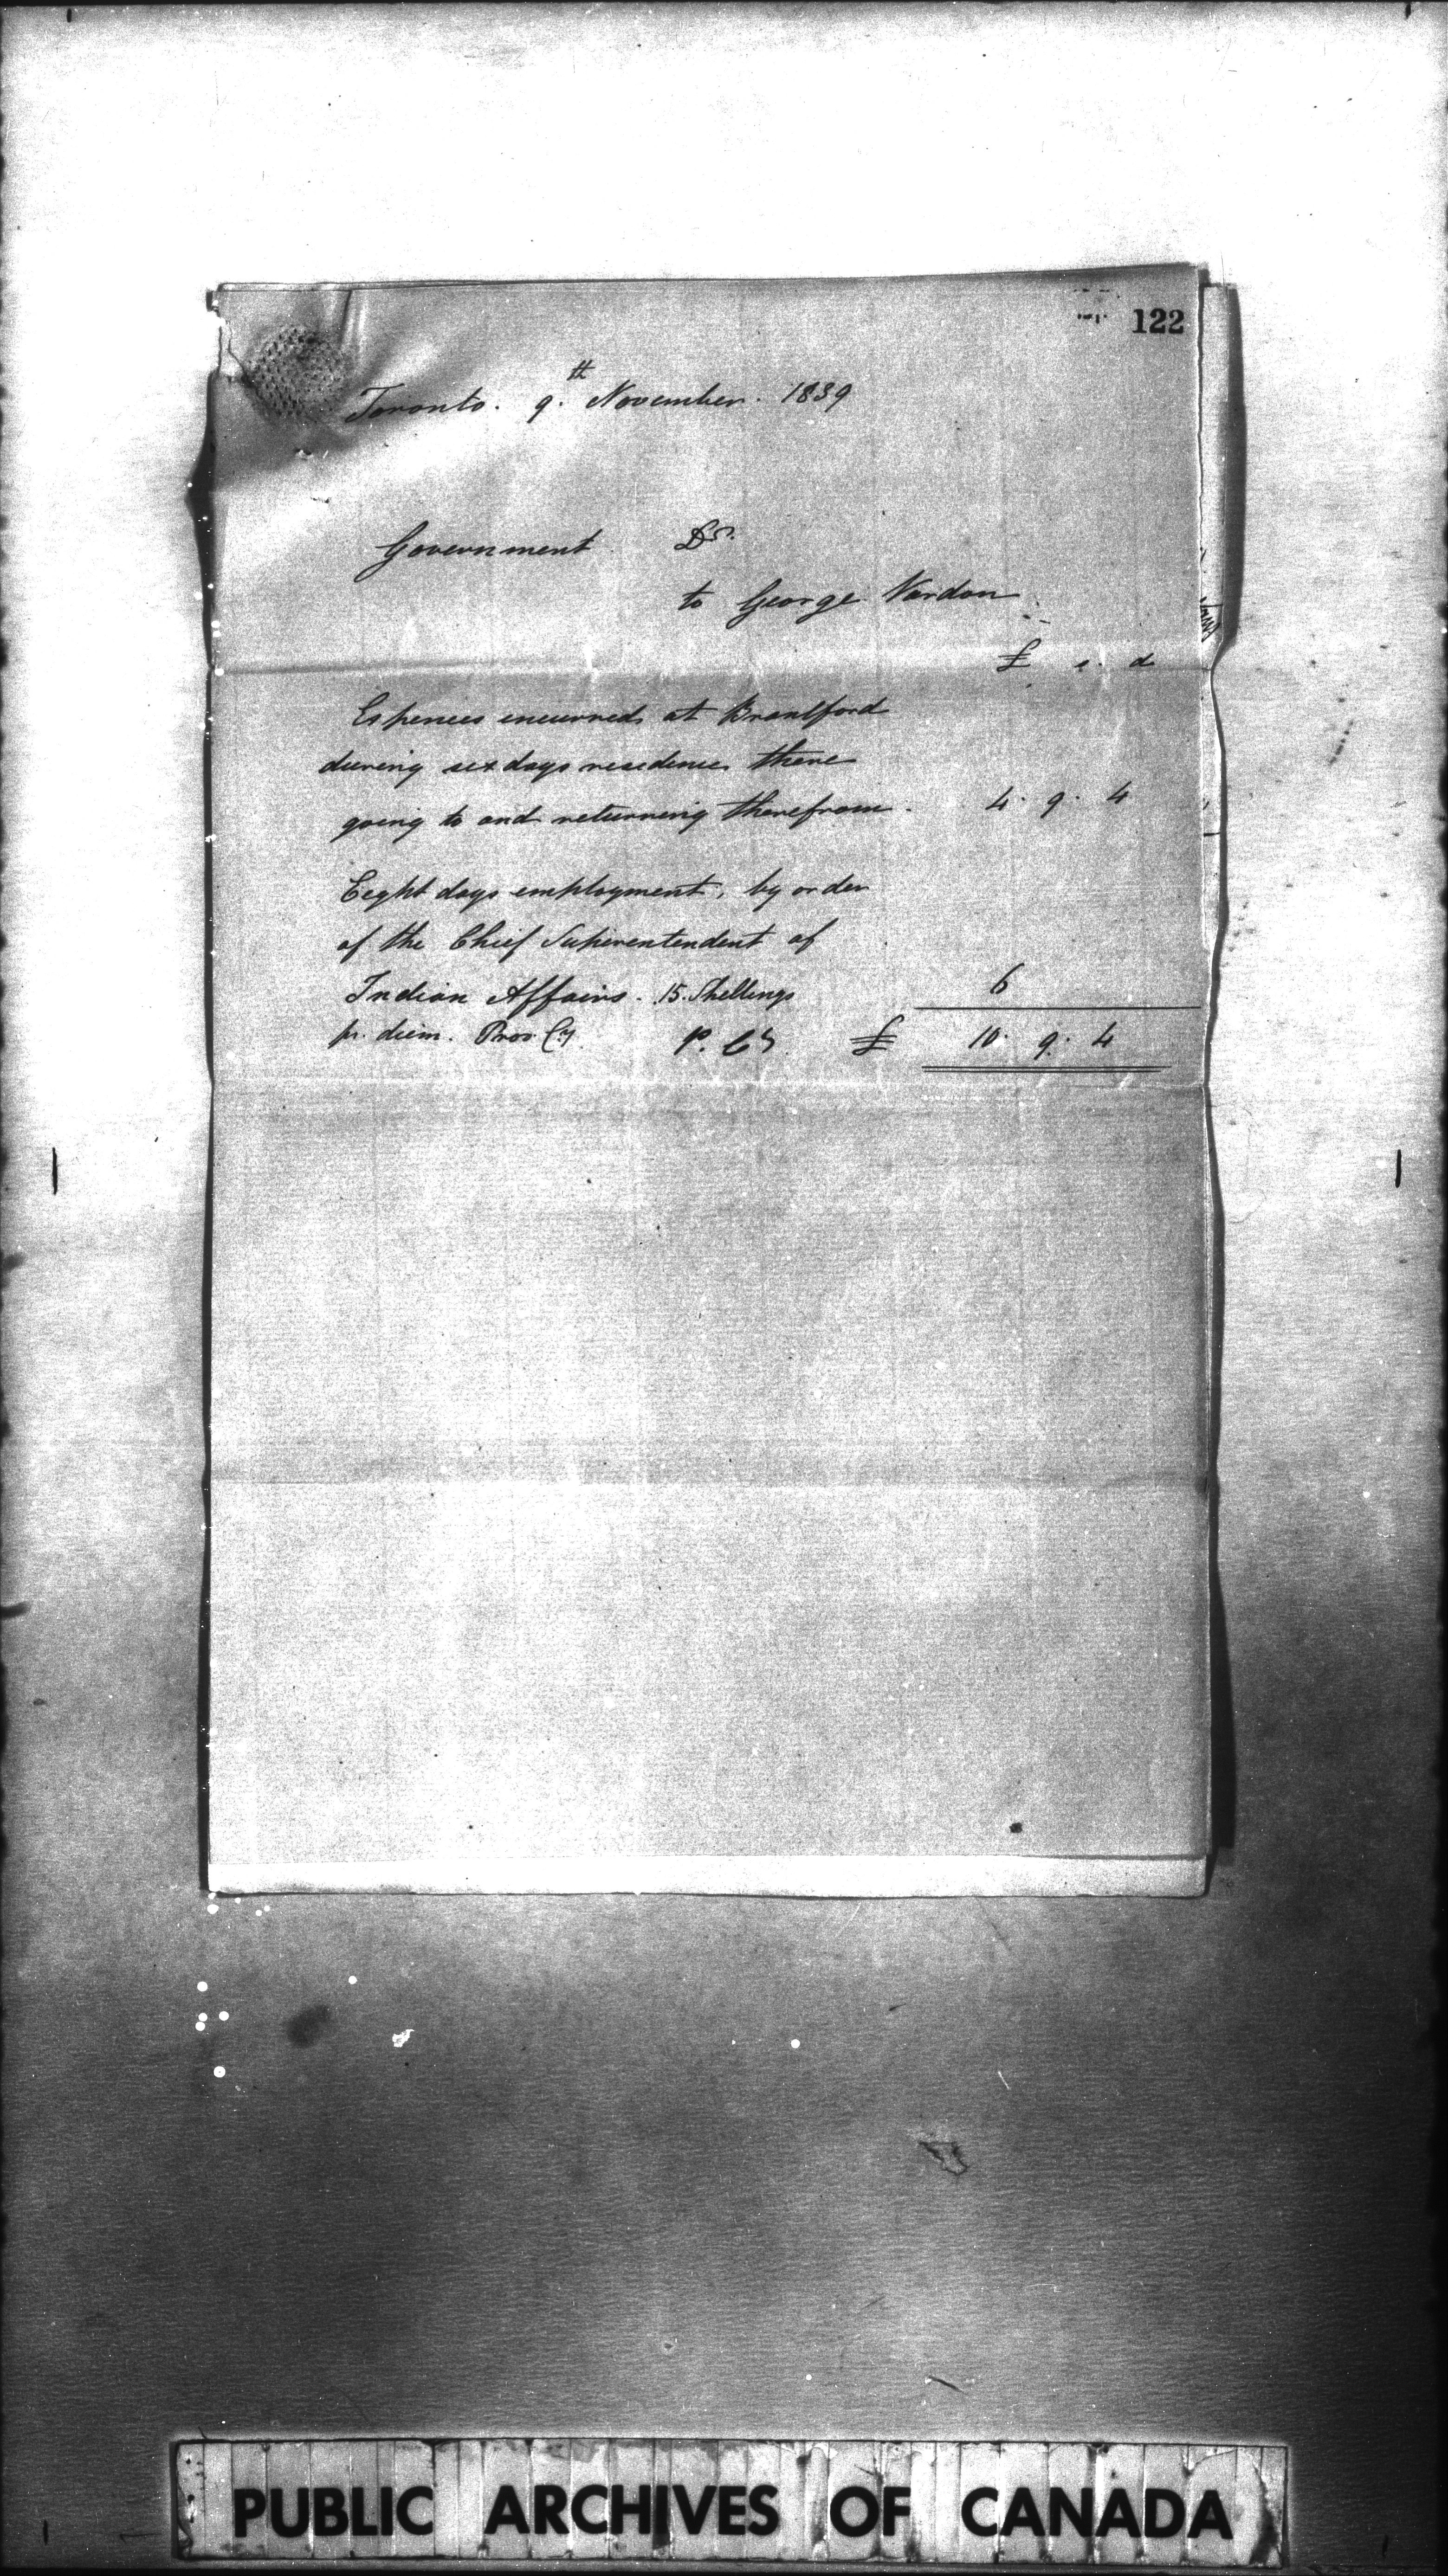 122
Toronto. 9th November. 1839
Government Dr.
to George Vardon
£ s. d
Expences incurred at Brantford
during six days residence there
going to and returning therefrom. 4. 9. 4
Eight days employment, by order
of the Chief Superintendent of
Indian Affairs. 15. Shillings 6
pr. diem. Prov. Cy. P. Cy. £ 10. 9. 4
PUBLIC ARCHIVES OF CANADA